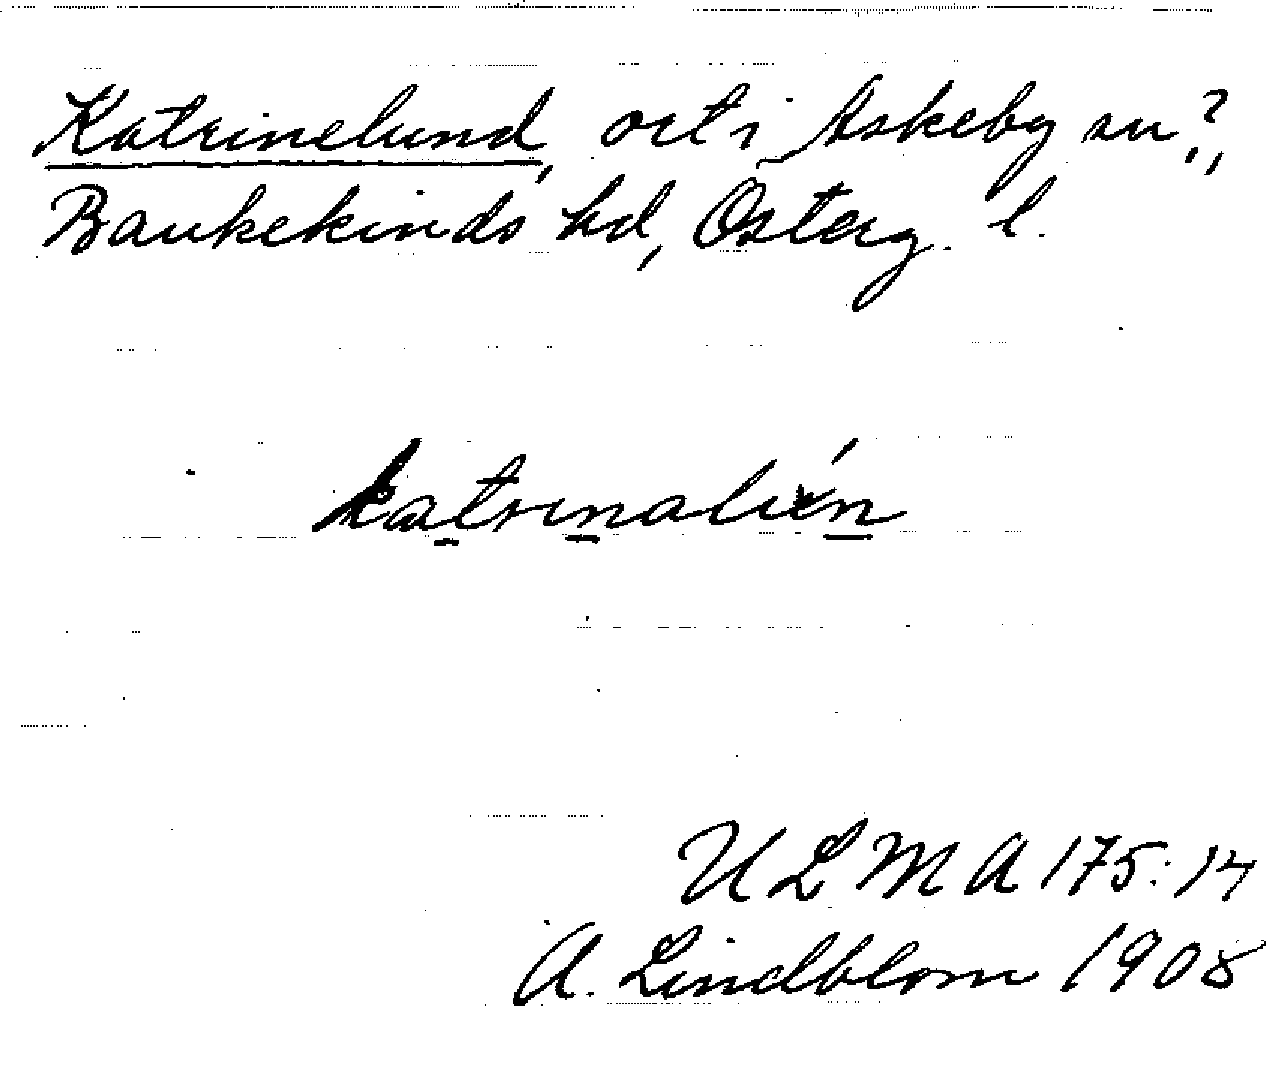 Katrinelund, ort i Askeby sn?,
Bankekinds hd, Österg. l.
katrinalún
ULMA 175:14
A. Lindblom 1908